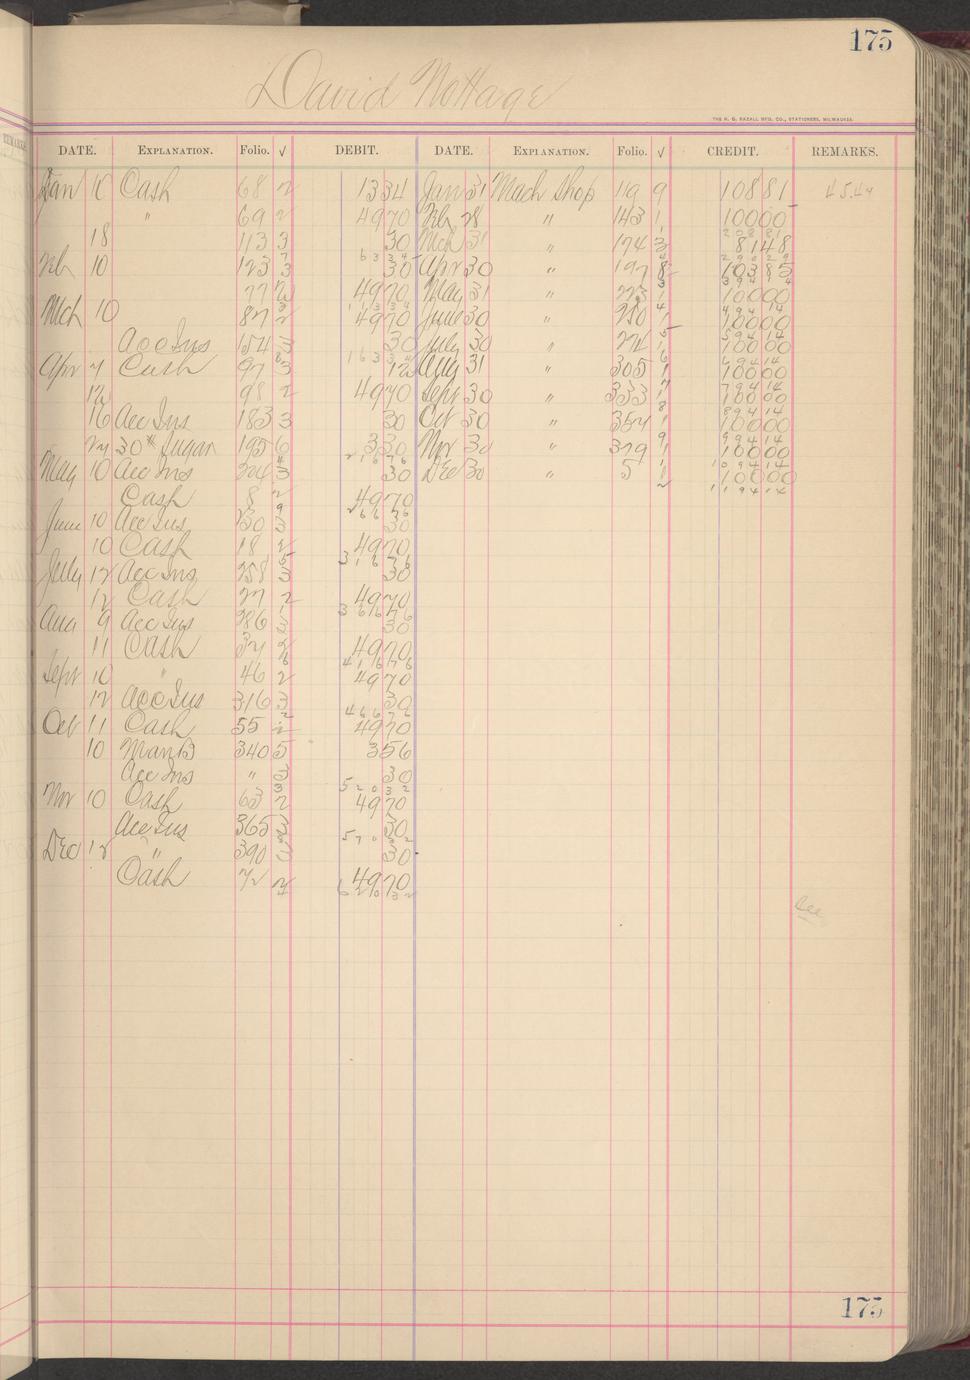 175
David Nottage
THE H. G. RAZALL MFG. CO., STATIONERS, MILWAUKEE.
DATE. EXPLANATION. Folio. √ DEBIT. DATE. EXPLANATION. Folio. √ CREDIT. REMARKS.
Jan 10 Cash 68 2 1334 Jan 31 Mach Shop 119 9 10881
" 69 2 4970 Feb 28 " 143 1 10000
20881
18 113 3 30 Mch 31 " 174 3 8148
6334 29029
Feb 10 123 3 30 Apr 30 " 197 8 10385
39414
77 2 4970 May 31 " 223 1 10000
11334 49414
Mch 10 87 2 4970 June 30 " 250 1 10000
59414
Acc Ins 154 3 30 July 30 " 274 1 10000
163 69414
Apr 7 Cash 97 3 12 Aug 31 " 305 1 10000
79414
12 98 2 4970 Sept 30 " 333 1 10000
89414
16 Acc Ins 183 3 30 Oct 30 " 354 1 10000
99414
24 30 # Sugar 195 6 330 Nov 30 " 379 1 10000
21676 109414
May 10 Acc Ins 224 3 30 Dec 30 " 5 1 10000
119414
Cash 8 2 4970
26676
June 10 Acc Ins 250 3 30
10 Cash 18 2 4970
31676
July 12 Acc Ins 258 3 30
12 Cash 27 2 4970
36676
Aug 9 Acc Ins 286 3 30
11 Cash 37 2 4970
41676
Sept 10 " 46 2 4970
12 Acc Ins 316 3 30
46676
Oct 11 Cash 55 2 4970
10 Man B 340 5 356
Acc Ins " 3 30
52032
Nov 10 Cash 63 2 4970
Acc Ins 365 3 30
57032
Dec 12 " 390 3 30
Cash 72 2 4970
62032
175